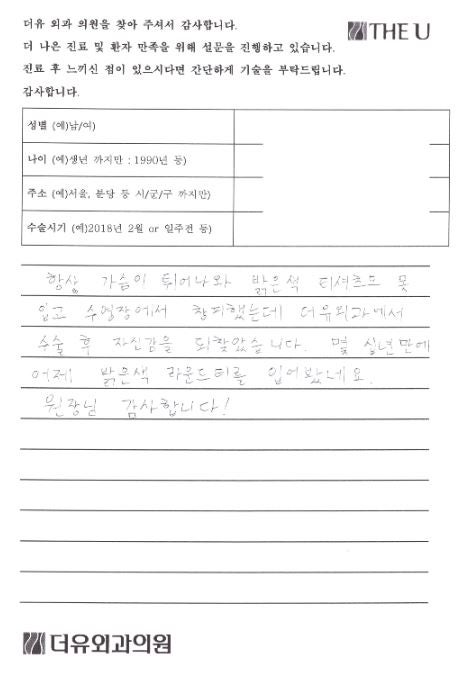 더유 외과 의원을 찾아 주셔서 감사합니다.
THE U
더 나은 진료 및 환자 만족을 위해 설문을 진행하고 있습니다.
진료 후 느끼신 점이 있으시다면 간단하게 기술을 부탁드립니다.
감사합니다.
성별 (예)남/여)
나이 (예)생년 까지만 : 1990년 등)
주소 (예)서울, 분당 등 시/군/구 까지만)
수술시기 (예)2018년 2월 or 일주전 등)
항상 가슴이 튀어나와 밝은색 티셔츠도 못
입고 수영장에서 창피했는데 더유외과에서
수술 후 자신감을 되찾았습니다. 몇 십년만에
어제 밝은색 라운드티를 입어봤네요.
원장님 감사합니다!
더유외과의원